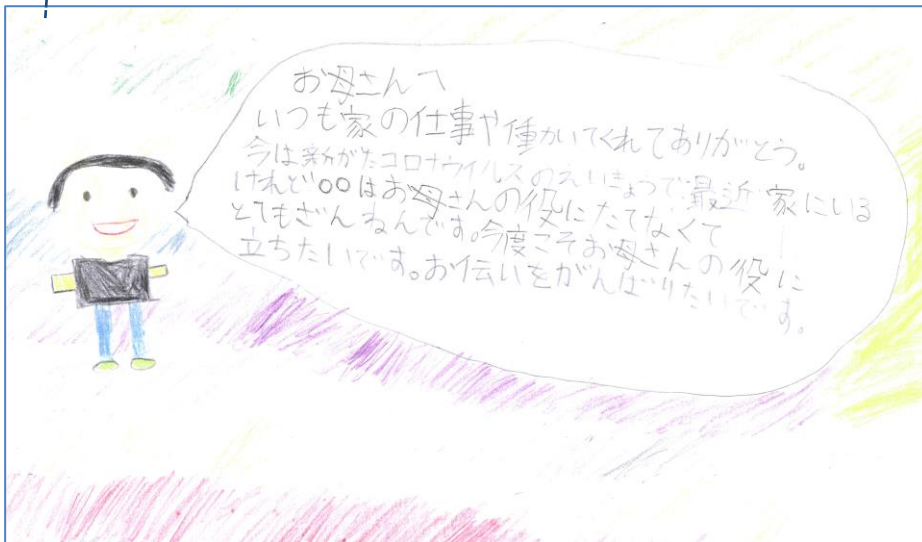 お母さんへ
いつも家の仕事や働かいてくれてありがとう。
今は新がたコロナウイルスのえいきょうで最近家にいる
けれど○○はお母さんの役にたてなくて
とてもざんねんです。今度こそお母さんの役に
立ちたいです。お伝いをがんばりたいです。